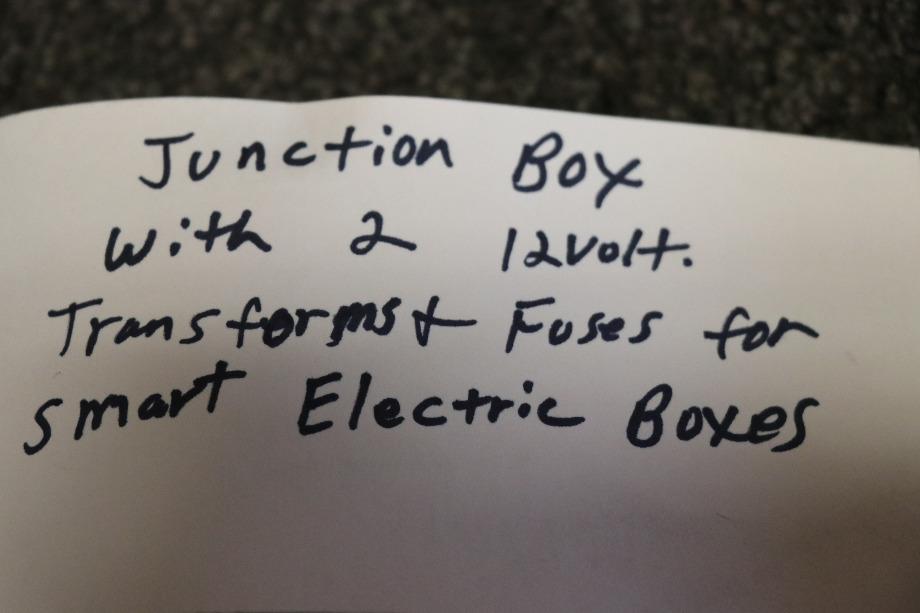 Junction Box
with 2 12volt.
Transforms & Fuses for
smart Electric Boxes